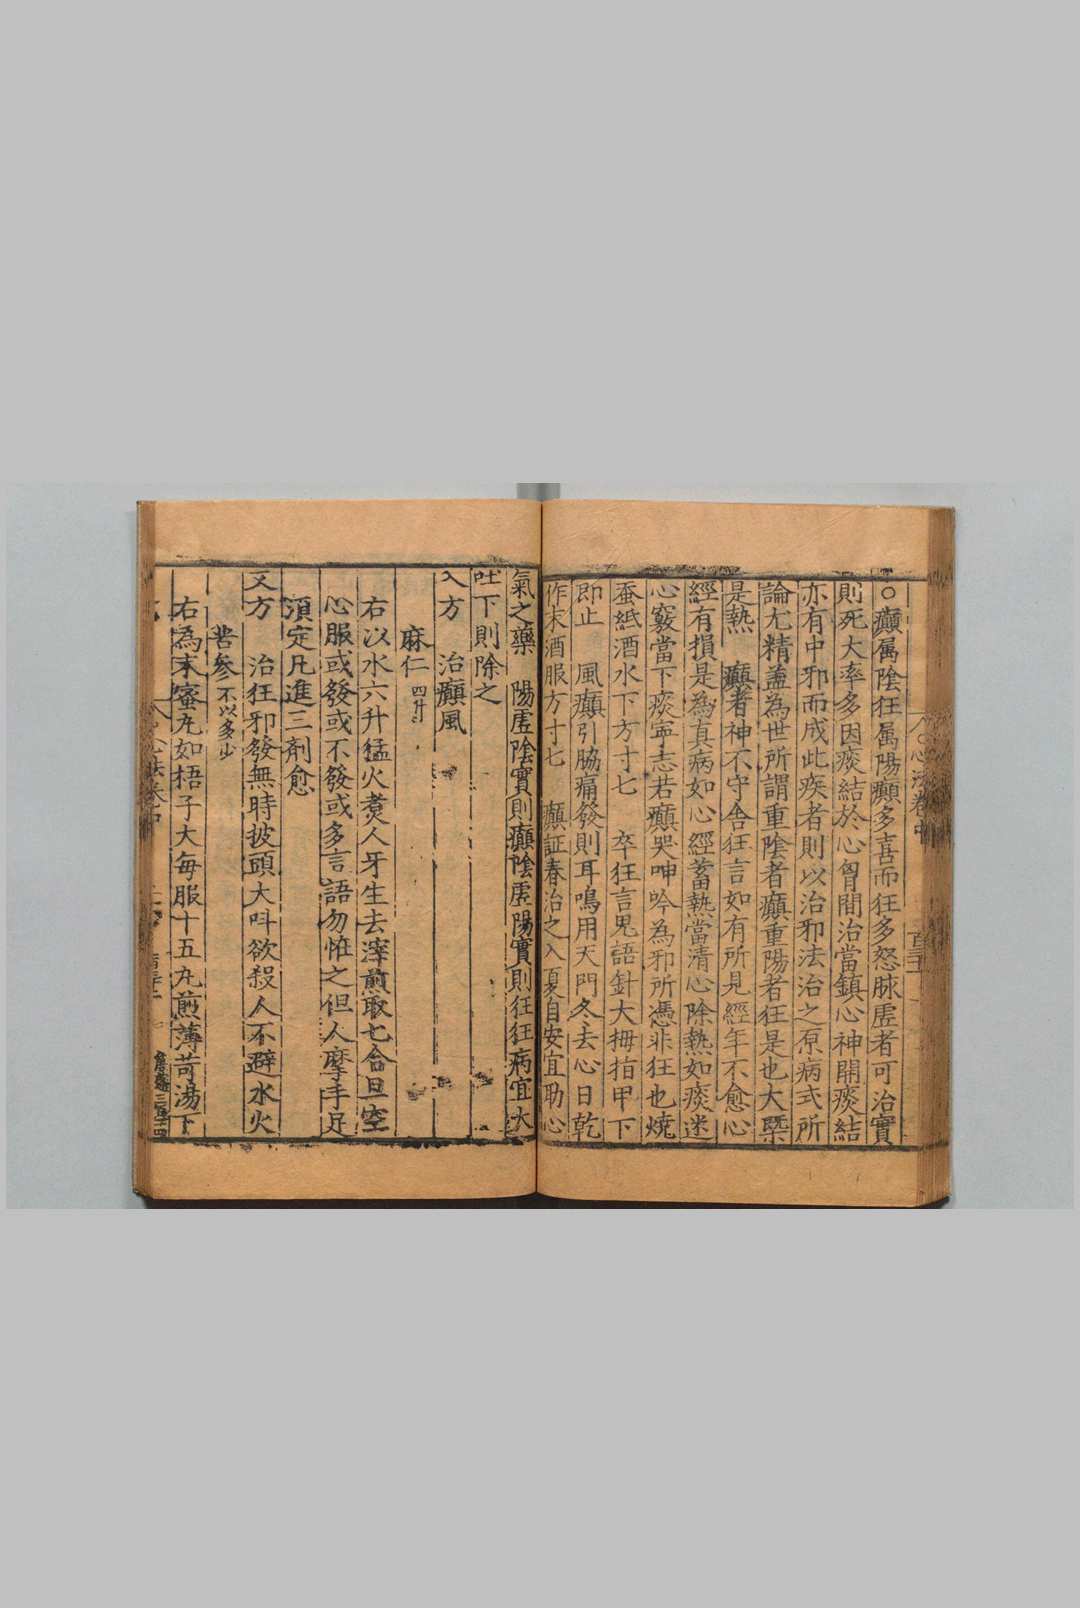 ○癲属陰狂属陽癲多喜而狂多怒脉虗者可治實
則死大率多因痰結於心胷間治當鎮心神開痰結
亦有中邪而成此疾者則以治邪法治之原病式所
論尤精盖為世所謂重陰者癲重陽者狂是也大槩
是熱　癲者神不守舍狂言如有所見經年不愈心
經有損是為真病如心經蓄熱當清心除熱如痰迷
心竅當下痰寧志若癲哭呻吟為邪所憑非狂也燒
蚕紙酒水下方寸匕　卒狂言鬼語針大拇指甲下
即止　風癲引脇痛發則耳鳴用天門冬去心日乾
作末酒服方寸匕　癲証春治之入夏自安宜助心
氣之藥　陽虗陰實則癲陰虗陽實則狂狂病宜大
吐下則除之
入方　治癲風
麻仁四升
右以水六升猛火煑人牙生去滓煎取七合旦空
心服或發或不發或多言語勿恠之但人摩手足
湏定凡進三劑愈
又方　治狂邪發無時披頭大呌欲殺人不避水火
苦參不以多少
右為末蜜丸如梧子大每服十五丸煎薄荷湯下
心法卷中